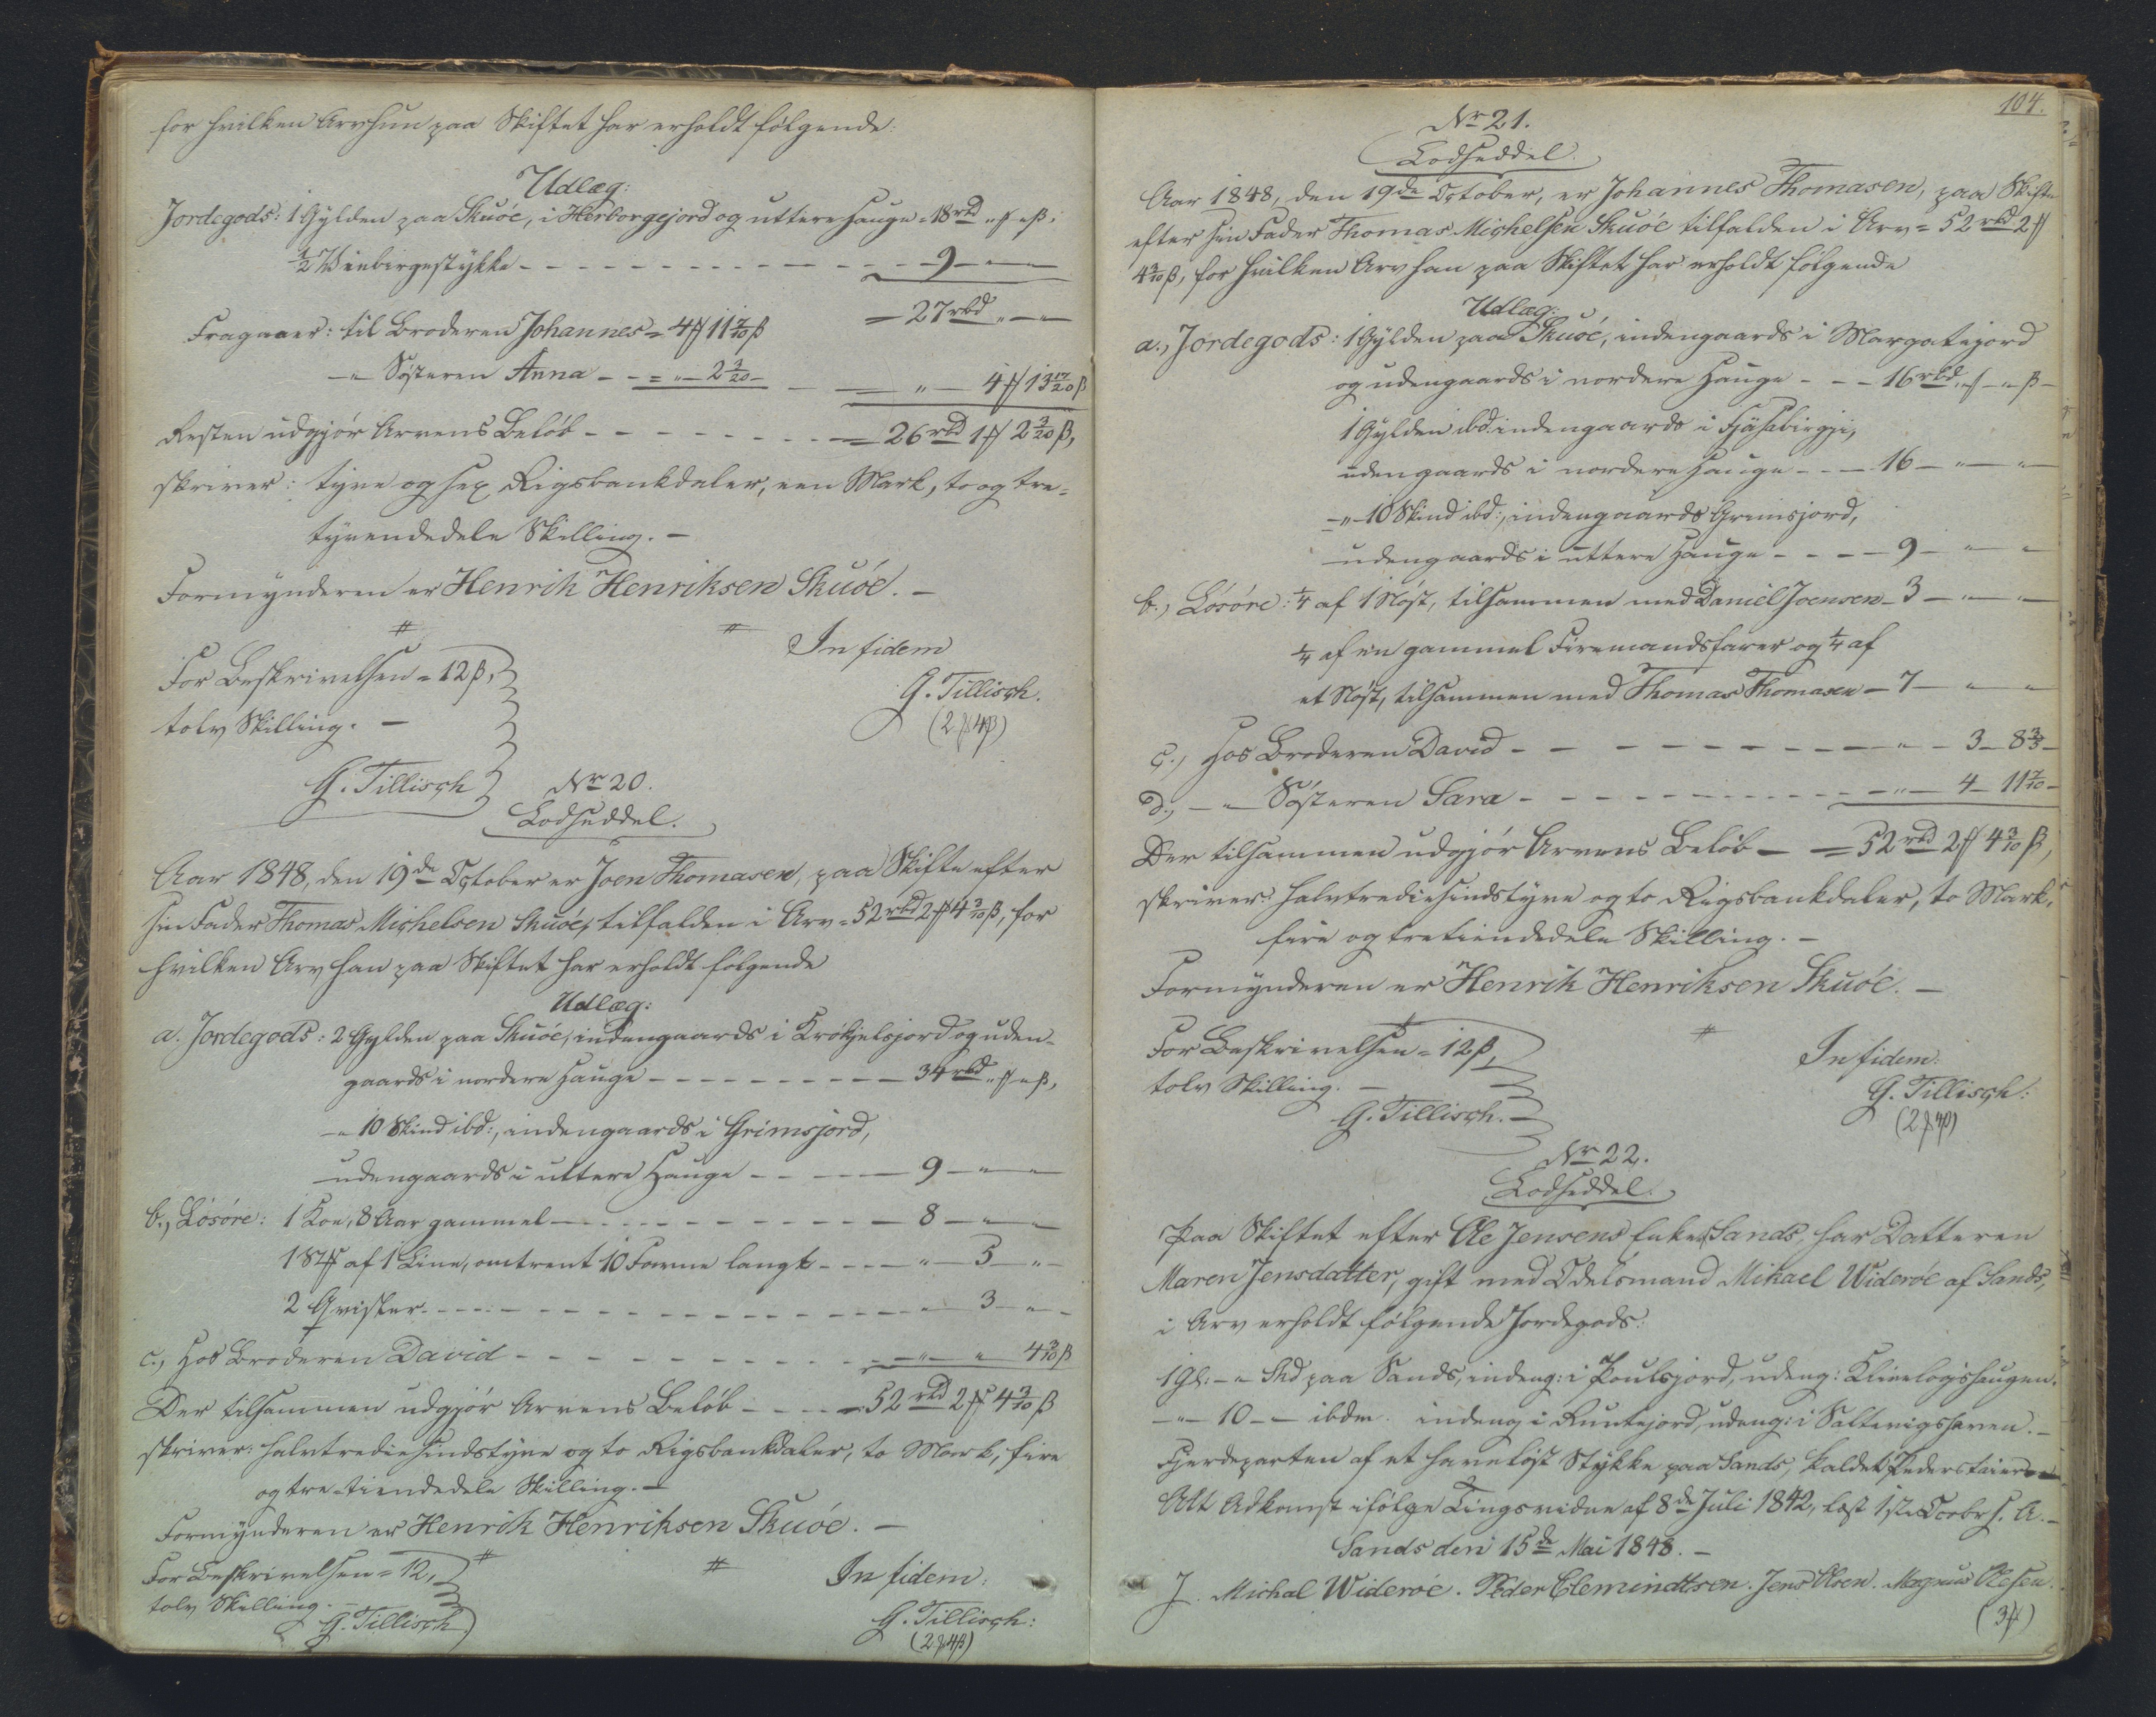 for hvilken Arv hun paa Skiftet har erholdt følgende:
Udlæg:
Jordegods: 1 Gylden paa Skuöe, i Herborgejord og uttere Hauge = 18 rbd „ ₰ „ ß.
½ Winbirgestykke - - - 9 - „ - „
= 27 rbd „ - „
Fragaaer: til Broderen Johannes = 4 ₰ 11 7/10 ß
- „ Søsteren Anna - - = „ - 2 3/20 - „ - 4 ₰ 13 17/20 ß
Resten udgjør Arvens Beløb - - - = 26 rbd 1 ₰ 2 3/20 ß,
skriver: tyve og sex Rigsbankdaler, een Mark, to og tre-
tyvendedele Skilling. -
Formynderen er Henrik Henriksen Skuöe. -
For Beskrivelsen = 12 ß,
In fidem
tolv Skilling. -
G. Tillisch.
(2 ₰ 4 ß)
G. Tillisch
No 20.
Lodseddel.
Aar 1848, den 19de October er Joen Thomasen, paa Skifte efter
sin Fader Thomas Michelsen Skuöe, tilfalden i Arv = 52 rbd 2 ₰ 4 3/10 ß, for
hvilken Arv han paa Skiftet har erholdt følgende
Udlæg:
a. Jordegods: 2 Gylden paa Skuöe, indengaards i Krökjelsjord og uden-
gaards i nordere Hauge - - - 34 rbd „ ₰ „ ß,
- „ 10 Skind ibd:, indengaards i Grimsjord,
udengaards i uttere Hauge - - - 9 - „ - „
b., Lösöre: 1 Koe, 8 Aar gammel - - - 8 - „ - „
18 ₰ af 1 Line, omtrent 10 Favne langt - - - „ - 5 - „ -
2 Qvister - - - „ - 3 - „ -
c., Hos Broderen David - - - „ - „ 4 3/10 ß
Der tilsammen udgjør Arvens Beløb - - - = 52 rbd 2 ₰ 4 3/10 ß
skriver: halvtrediesindstyve og to Rigsbankdaler, to Mark, fire
og tre-tiendedele Skilling. -
Formynderen er Henrik Henriksen Skuöe. -
For Beskrivelsen = 12,
In fidem:
tolv Skilling. -
G. Tillisch
G. Tillisch:
(2 ₰ 4 ß)
104.
No 21.
Lodseddel.
Aar 1848, den 19de October, er Johannes Thomasen, paa Skifte
efter sin Fader Thomas Michelsen Skuöe tilfalden i Arv = 52 rbd 2 ₰
4 3/10 ß, for hvilken Arv han paa Skiftet har erholdt følgende
Udlæg:
a., Jordegods: 1 Gylden paa Skuöe, indengaards i Margatejord
og udengaards i nordere Hauge - - - 16 rbd „ ₰ - „ ß -
1 Gylden ibd: indengaards i Fjösabirgji,
udengaards i nordere Hauge - - - 16 - „ - „
- „ - 10 Skind ibd:, indengaards Grimsjord,
udengaards i uttere Hauge - - - 9 - „ - „
b., Lösöre: ¼ af 1 Nøst, tilsammen med Daniel Joensen - 3 - „ - „
¼ af en gammel Firemandsfarer og ¼ af
et Nøst, tilsammen med Thomas Thomasen - 7 - „ - „
c., Hos Broderen David - - - „ - 3 - 8 3/5 -
d., - „ Søsteren Sara - - - „ - 4 - 11 7/10 -
Der tilsammen udgjør Arvens Beløb - = 52 rbd 2 ₰ 4 3/10 ß,
skriver: halvtrediesindstyve og to Rigsbankdaler, to Mark,
fire og tretiendedele Skilling. -
Formynderen er Henrik Henriksen Skuöe. -
For Beskrivelsen = 12 ß,
In fidem:
tolv Skilling. -
G. Tillisch:
G. Tillisch. -
(2 ₰ 4 ß)
No 22.
Lodseddel.
Paa Skiftet efter Ole Jensens Enke, Sands, har Datteren
Maren Jensdatter, gift med Odelsmand Mikael Wideröe af Sands,
i Arv erholdt følgende Jordegods:
1 Gl: - „ Skd paa Sands, indeng: i Poulsjord, udeng: Klivelogshaugen.
- „ - 10 - - ibdm. indeng i Runtejord, udeng: i Saltvigshaven. -
Fjerdeparten af et haveløst Stykke paa Sands, kaldet
Alt Adkomst ifølge Tingsvidne af 8de Juli 1842, læst 1ste Octbr s. A. -
Sands den 15de Mai 1848. -
J. Michal Wideröe. Peder Clemindtsen. Jens Olsen. Magnus Olesen.
(3 ₰)